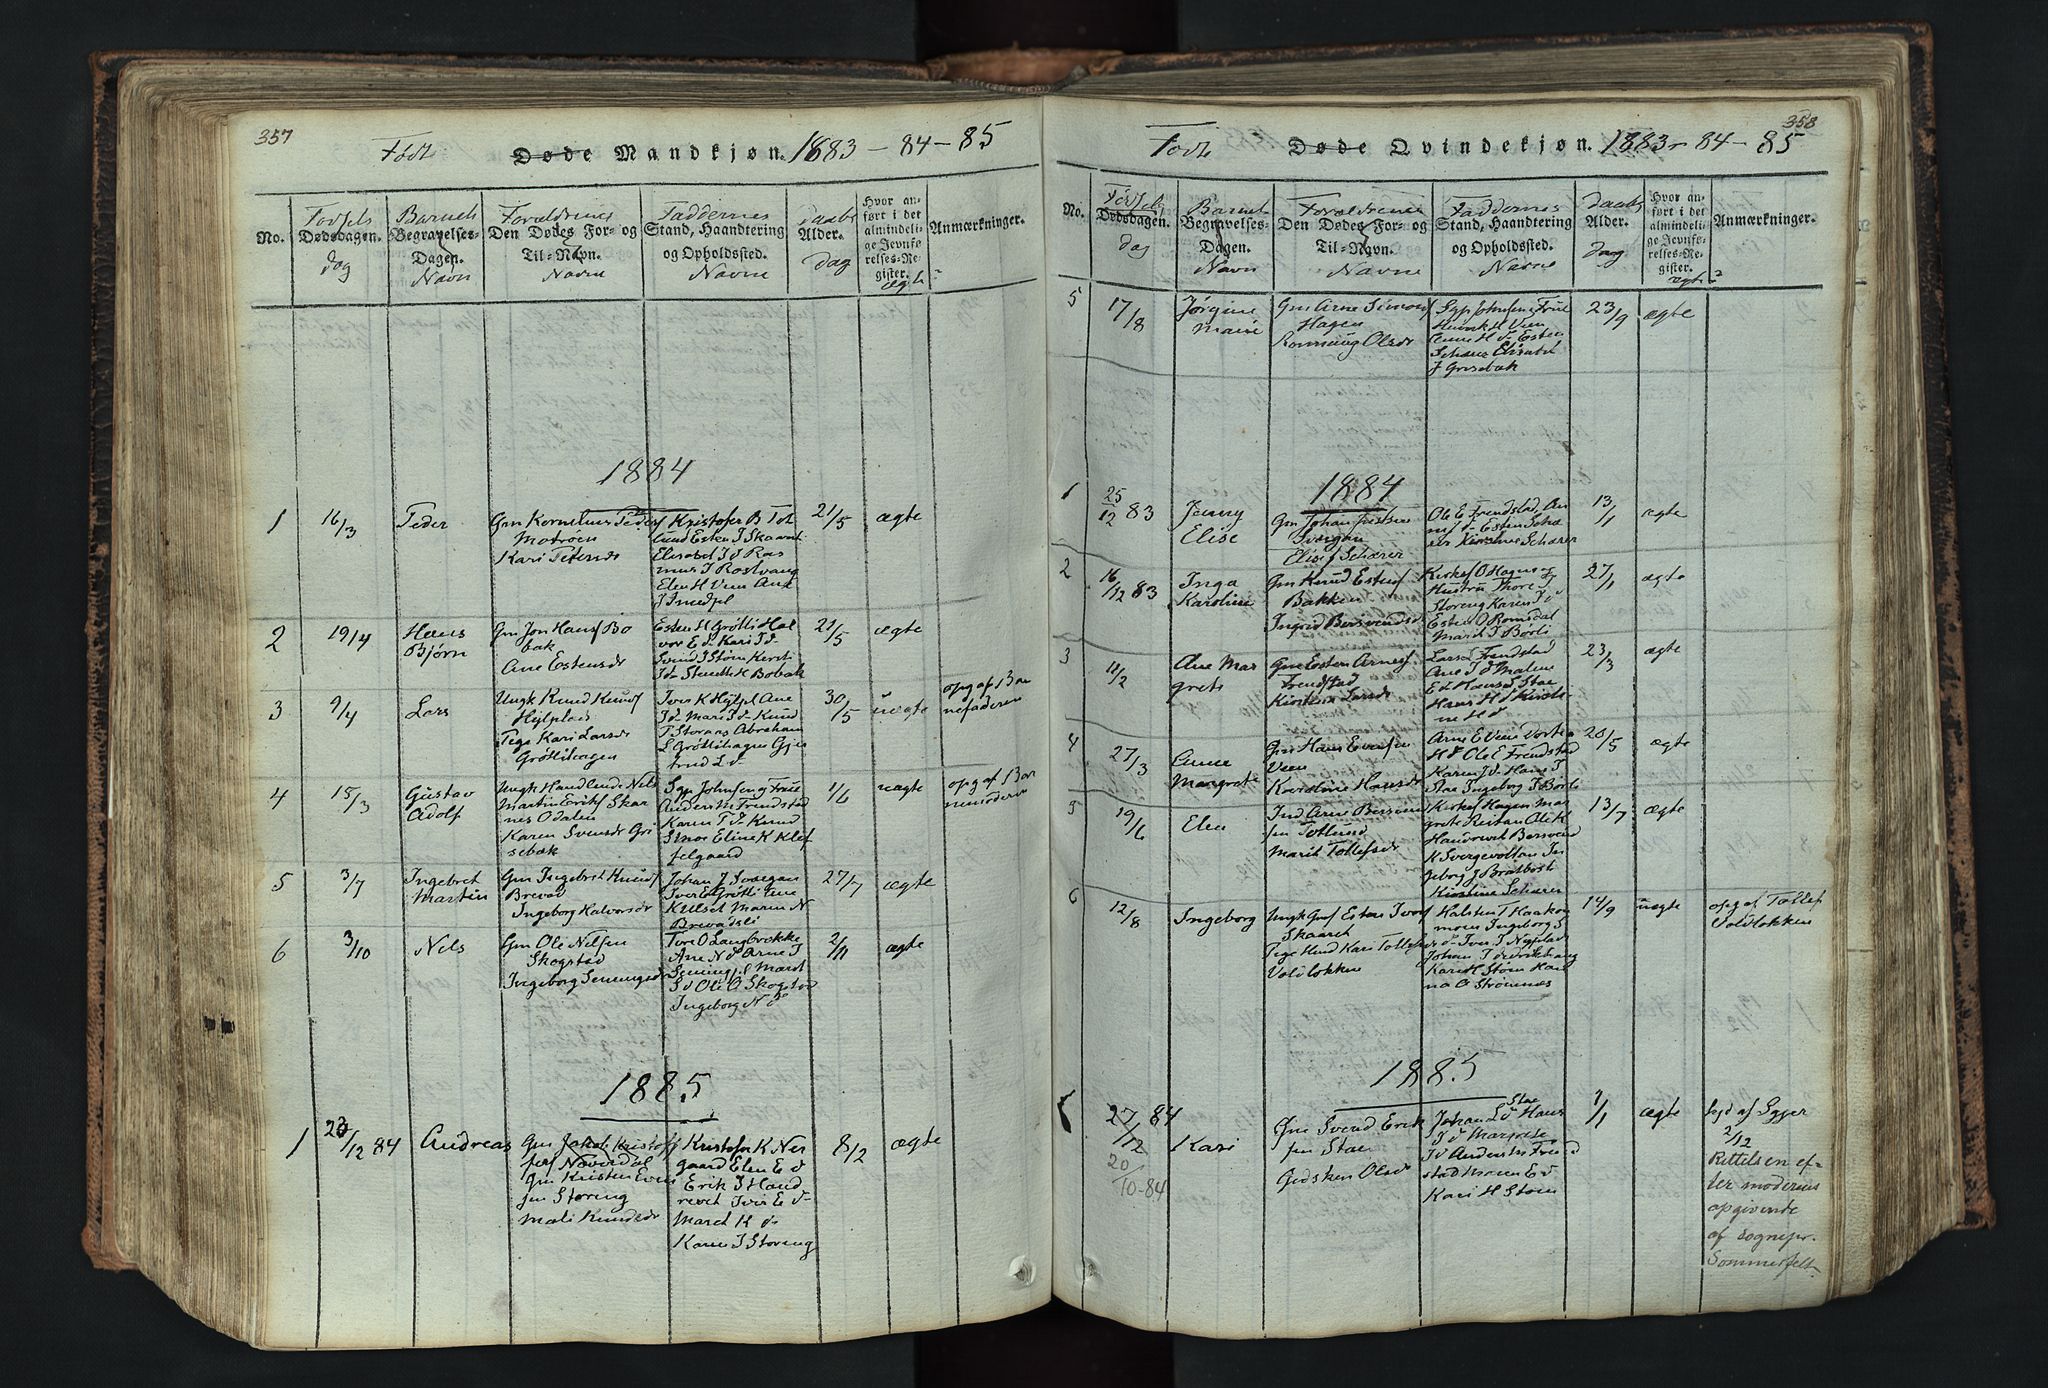 357
Født
Døde Mandkjøn. 1883-84-85
No.
Fødsels
Dødsdagen.
dag
Barnets
Begravelses-
Dagen.
Navn
Forældrenes
Den Dødes For- og
Til-Navn.
Navne
Faddernes
Stand, Haandtering
og Opholdssted.
Navne
Daabs
Alder.
Dag
Hvor an-
ført i det
almindeli-
ge Jevnfø-
relses-Re-
gister.
ægte?
Anmærkninger.
1884
1
16/3
Peder
Gm Kornelius Peders
Motrøen
Kari Petersdr
Kristofer B Tot
lund Esten J Skaaret
Elisabet J d Ras
mus J Rostvang
Elen H Veen Ane
J Smedpl
21/5
ægte
2
19/4
Hans
Bjørn
Gm Jon Hansf Bo
bak
Ane Estensdr
Esten H Grøtli Hal
vor E d Kari J d
Svend J Støen Kerst
J d H Bobak
21/5
ægte
3
9/4
Lars
Ungk Knud Knudsf
Nyplads
Pige Kari Larsdr
Grøtlihagen
Iver K Nypl Ane
J d Mari J d Knud
J Storaas Abraham
L Grøtlihagen Gjer
trud L d
30/5
uægte
opg af Bar
nefaderen
4
15/3
Gustav
Adolf
Ungk Handlende Nils
Martin Eriks Skar
nes Odalen
Karen Svensdr Gri
sebak
Sgp Johnsen og Frue
Anders M Frendstad
Karen J d Knud
Stroe Eline K Klef
felgaard
1/6
uægte
opg af Bar
nemoderen
5
3/7
Ingebret
Martin
Gm Ingebret Knudsf
Brevad
Ingeborg Halvorsdr
Johan J Svergen
Iver E Grøtli Ane
K Ulset Maren N
Brevadsli
27/7
ægte
6
3/10
Nils
Gm Ole Nilsen
Skogstad
Ingeborg Semingsdr
Tore O Langbrække
Ane N d Arne J
Semingpl Marit
J d Ole O Skogstad
Ingeborg N d
2/11
ægte
1885
1
23/12 84
Andreas
Gm Jakob Kristoff
fers Naverdal
Gm Kristen Even
sen Storeng
Mali Knudsdr
Kristofer K Ner
gaard Elen E d
Erik J Hand
revet Iver E d
Maret K d
Karen J Storeng
8/2
ægte
358
Født
Døde Qvindekjøn. 1883-84-85
No.
Fødsels
Dødsdagen.
dag
Barnets
Begravelses-
Dagen.
Navn
Forældrenes
Den Dødes For- og
Til-Navn.
Navne
Faddernes
Stand, Haandtering
og Opholdssted.
Navne
Daabs
Alder.
dag
Hvor an-
ført i det
almindelige
Jevnfø-
relses-Re-
gister.
ægte?
Anmærkninger.
5
17/8
Jørgine
Marie
Gm Arne Simonsf
Hagen
Ronnaug Olsdr
Sgp Johnsen og Frue
Henrik H Veen
Anne H d Esten
Schærer Elisabet
J Grisebak
23/9
ægte
1884
1
25/12 83
Jenny
Elise
Gm Johan
Svergen
Elisef Schærer
Ole E Frendstad An
ne J d Esten Schæ
rer Kirstine Schærer
13/1
ægte
2
16/12 83
Inga
Karoline
Gm Knud Estensf
Bakken
Ingrid Bersvendsdr
Kirkes O Hagen og
Hustru Thore J
Storeng Karen J d
Esten O Romsdal
Marit J Borli
27/1
ægte
3
11/2
Ane Mar
grete
Gm Esten Arnesf
Frendstad
Kirstine Larsdr
Lars A Frendstad
Ane J d Malene
E d Hans S Stae
Hans H d Kirsti-
ne H d
23/3
ægte
4
27/3
Anne
Margrete
Gm Hans Evensen
Veen
Karoline Hansdr
Arne E Veen Dorte
H d Ole E Frendstad
Karen J d Hans J
Stae Ingeborg J Borli
20/5
ægte
5
19/6
Elen
Ind Arne Bersvend
sen Totlund
Marit Tollefsdr
Kirkes Hagen Mar
grete Ristan Ole K
Handrevet Bersvend
K Svergevolton In
geborg J Bratbost
Kirstine Schærer
13/7
ægte
6
12/8
Ingeborg
Ungk Graf Esten Iversf
Skaaret
Pige Hind Kari Tollefsdr
Voldlokken
Halsten T Haakon
moen Ingeborg J
d Iver J Nyplads
Johan J Fredrikhaug
Kari H Støen Han
na O Strømnæs
14/9
uægte
opg af Tollef
Voldlokken
1885
1
27/12 84
20/10-84
Kari
Gm Svend Erik
sen Stae
Gidsken Olsdr
Stae
Johan L d Hans
J d Margrete
J d Anders M Frend
stad Maren E d
Kari H Støen
1/1
ægte
født af Egger
2/12
Rettelsen ef-
ter moderens
opgivende
af sognepr.
Sommerfelt.